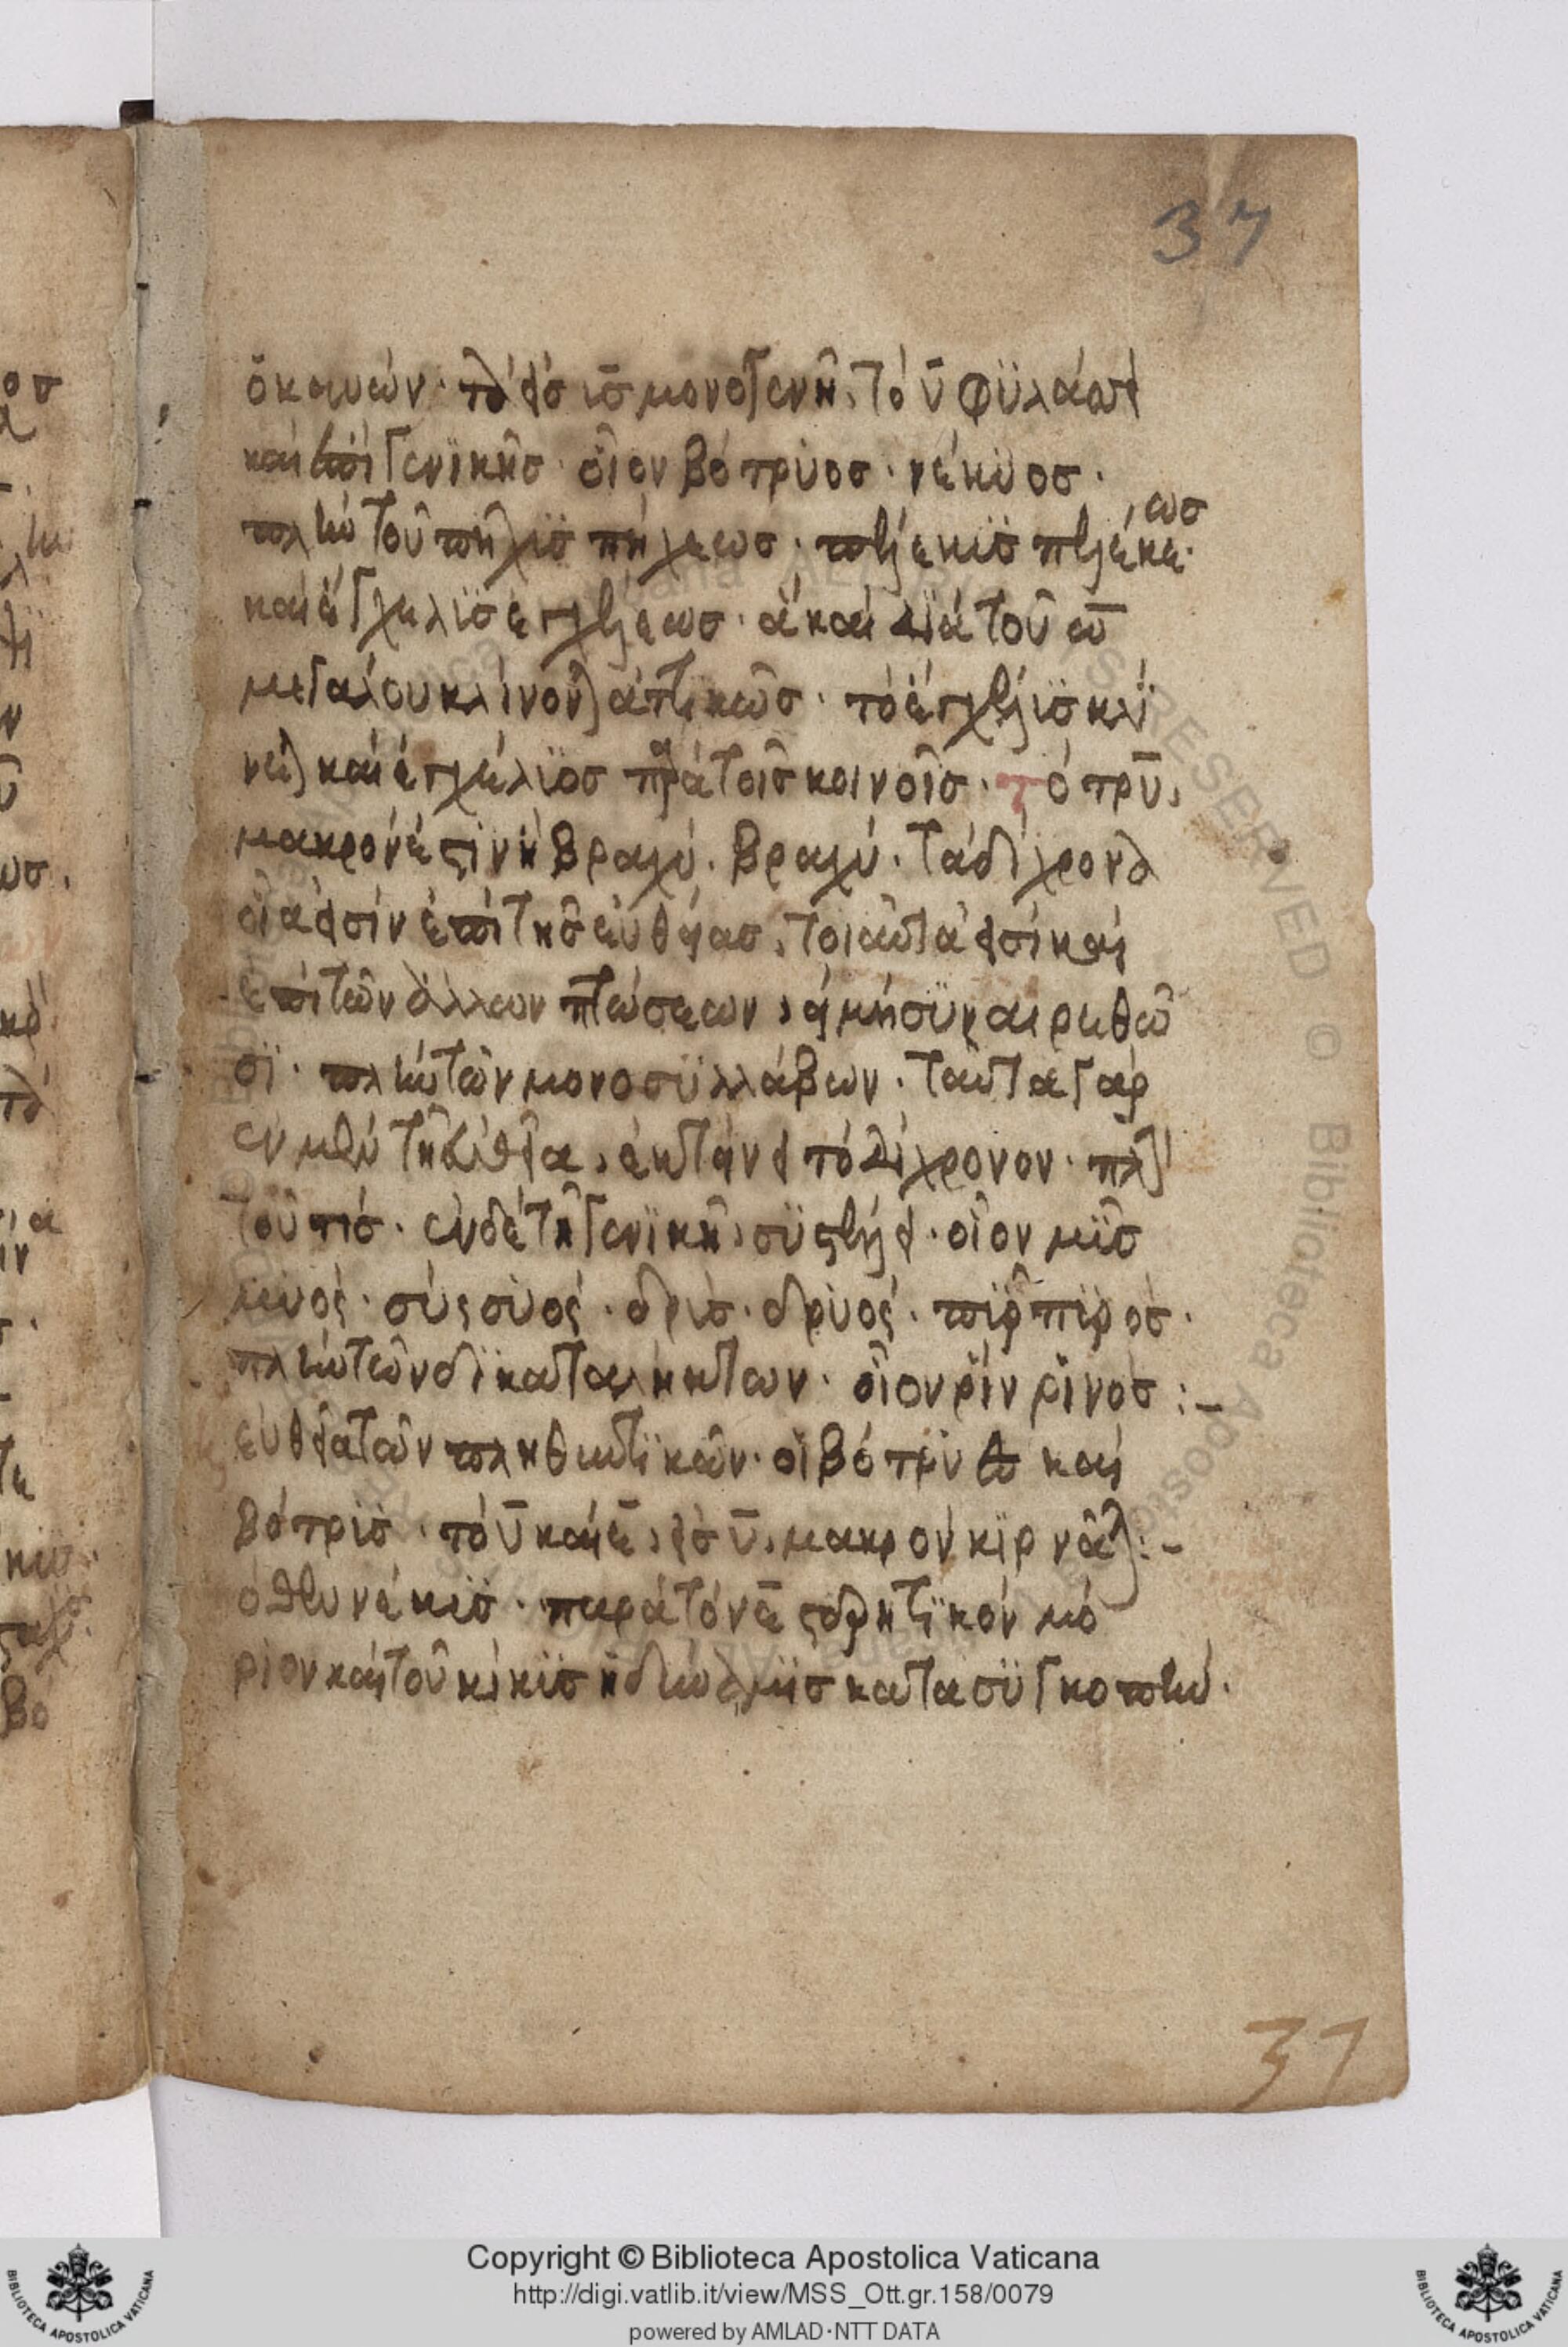 37
ὁ κανών· τὰ εἰς ῡς μονογενῆ, τὸ ῡ φυλάσσει
καὶ ἐπὶ γενικῆς· οἷον βότρυος· νέκυος·
πλὴν τοῦ πῆχυς πήχεως· πέλεκυς πελέκεως·
καὶ ἔγχελυς ἐγχέλεως· ἃ καὶ διὰ τοῦ ω
μεγάλου κλίνονται ἀττικῶς· τὸ ἔγχελυς κλί
νεται καὶ ἐγχέλυος παρὰ τοῖς κοινοῖς· τὸ τρυ,
μακρόν ἐστιν ἢ βραχύ· βραχύ· τὰ δίχρονα
οἷά εἰσιν ἐπὶ τῆς εὐθείας, τοιαῦτά εἰσι καὶ
ἐπὶ τῶν ἄλλων πτώσεων, εἰ μὴ συναιρεθῶ
σι· πλὴν τῶν μονοσυλλάβων· ταῦτα γὰρ
ἐν μὲν τῇ εὐθείᾳ, ἐκτείνει τὸ δίχρονον· πλὴν
τοῦ τίς· ἐν δὲ τῇ γενικῇ, συστέλλει· οἷον μῦς
μυός· σύς συός· δρῦς· δρυός· πῦρ πυρός·
πλὴν τῶν δικαταλήκτων· οἷον ῥίν ῥινός :-
εὐθεῖα τῶν πληθυντικῶν· οἱ βότρυες καὶ
βότρυς· τὸ ῡ καὶ ε̄, εἰς ῡ, μακρὸν κιρνᾶται :-
ὅθεν νέκυς· παρὰ τὸ νε στερητικὸν μό
ριον καὶ τοῦ κίκυς ἡ δύναμις κατὰ συγκοπήν·
37
Copyright © Biblioteca Apostolica Vaticana
http://digi.vatlib.it/view/MSS_Ott.gr.158/0079
powered by AMLAD·NTT DATA